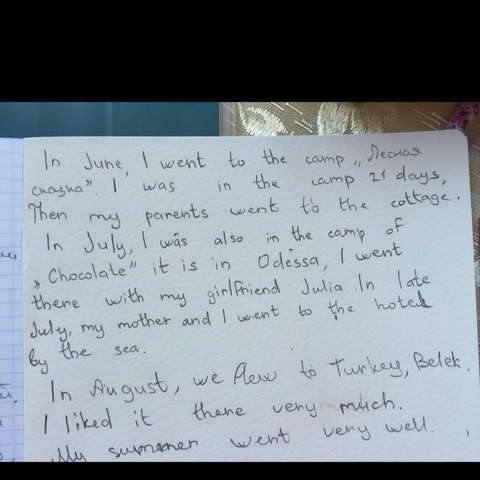 In June, I went to the camp „Лесная
сказка". I was in the camp 21 days,
Then my parents went to the cottage.
In July, I was also in the camp of
„Chocolate" it is in Odessa, I went
there with my girlfriend Julia. In late
July, my mother and I went to the hotel
by the sea.
In August, we flew to Turkey, Belek.
I liked it there very much.
My summer went very well.